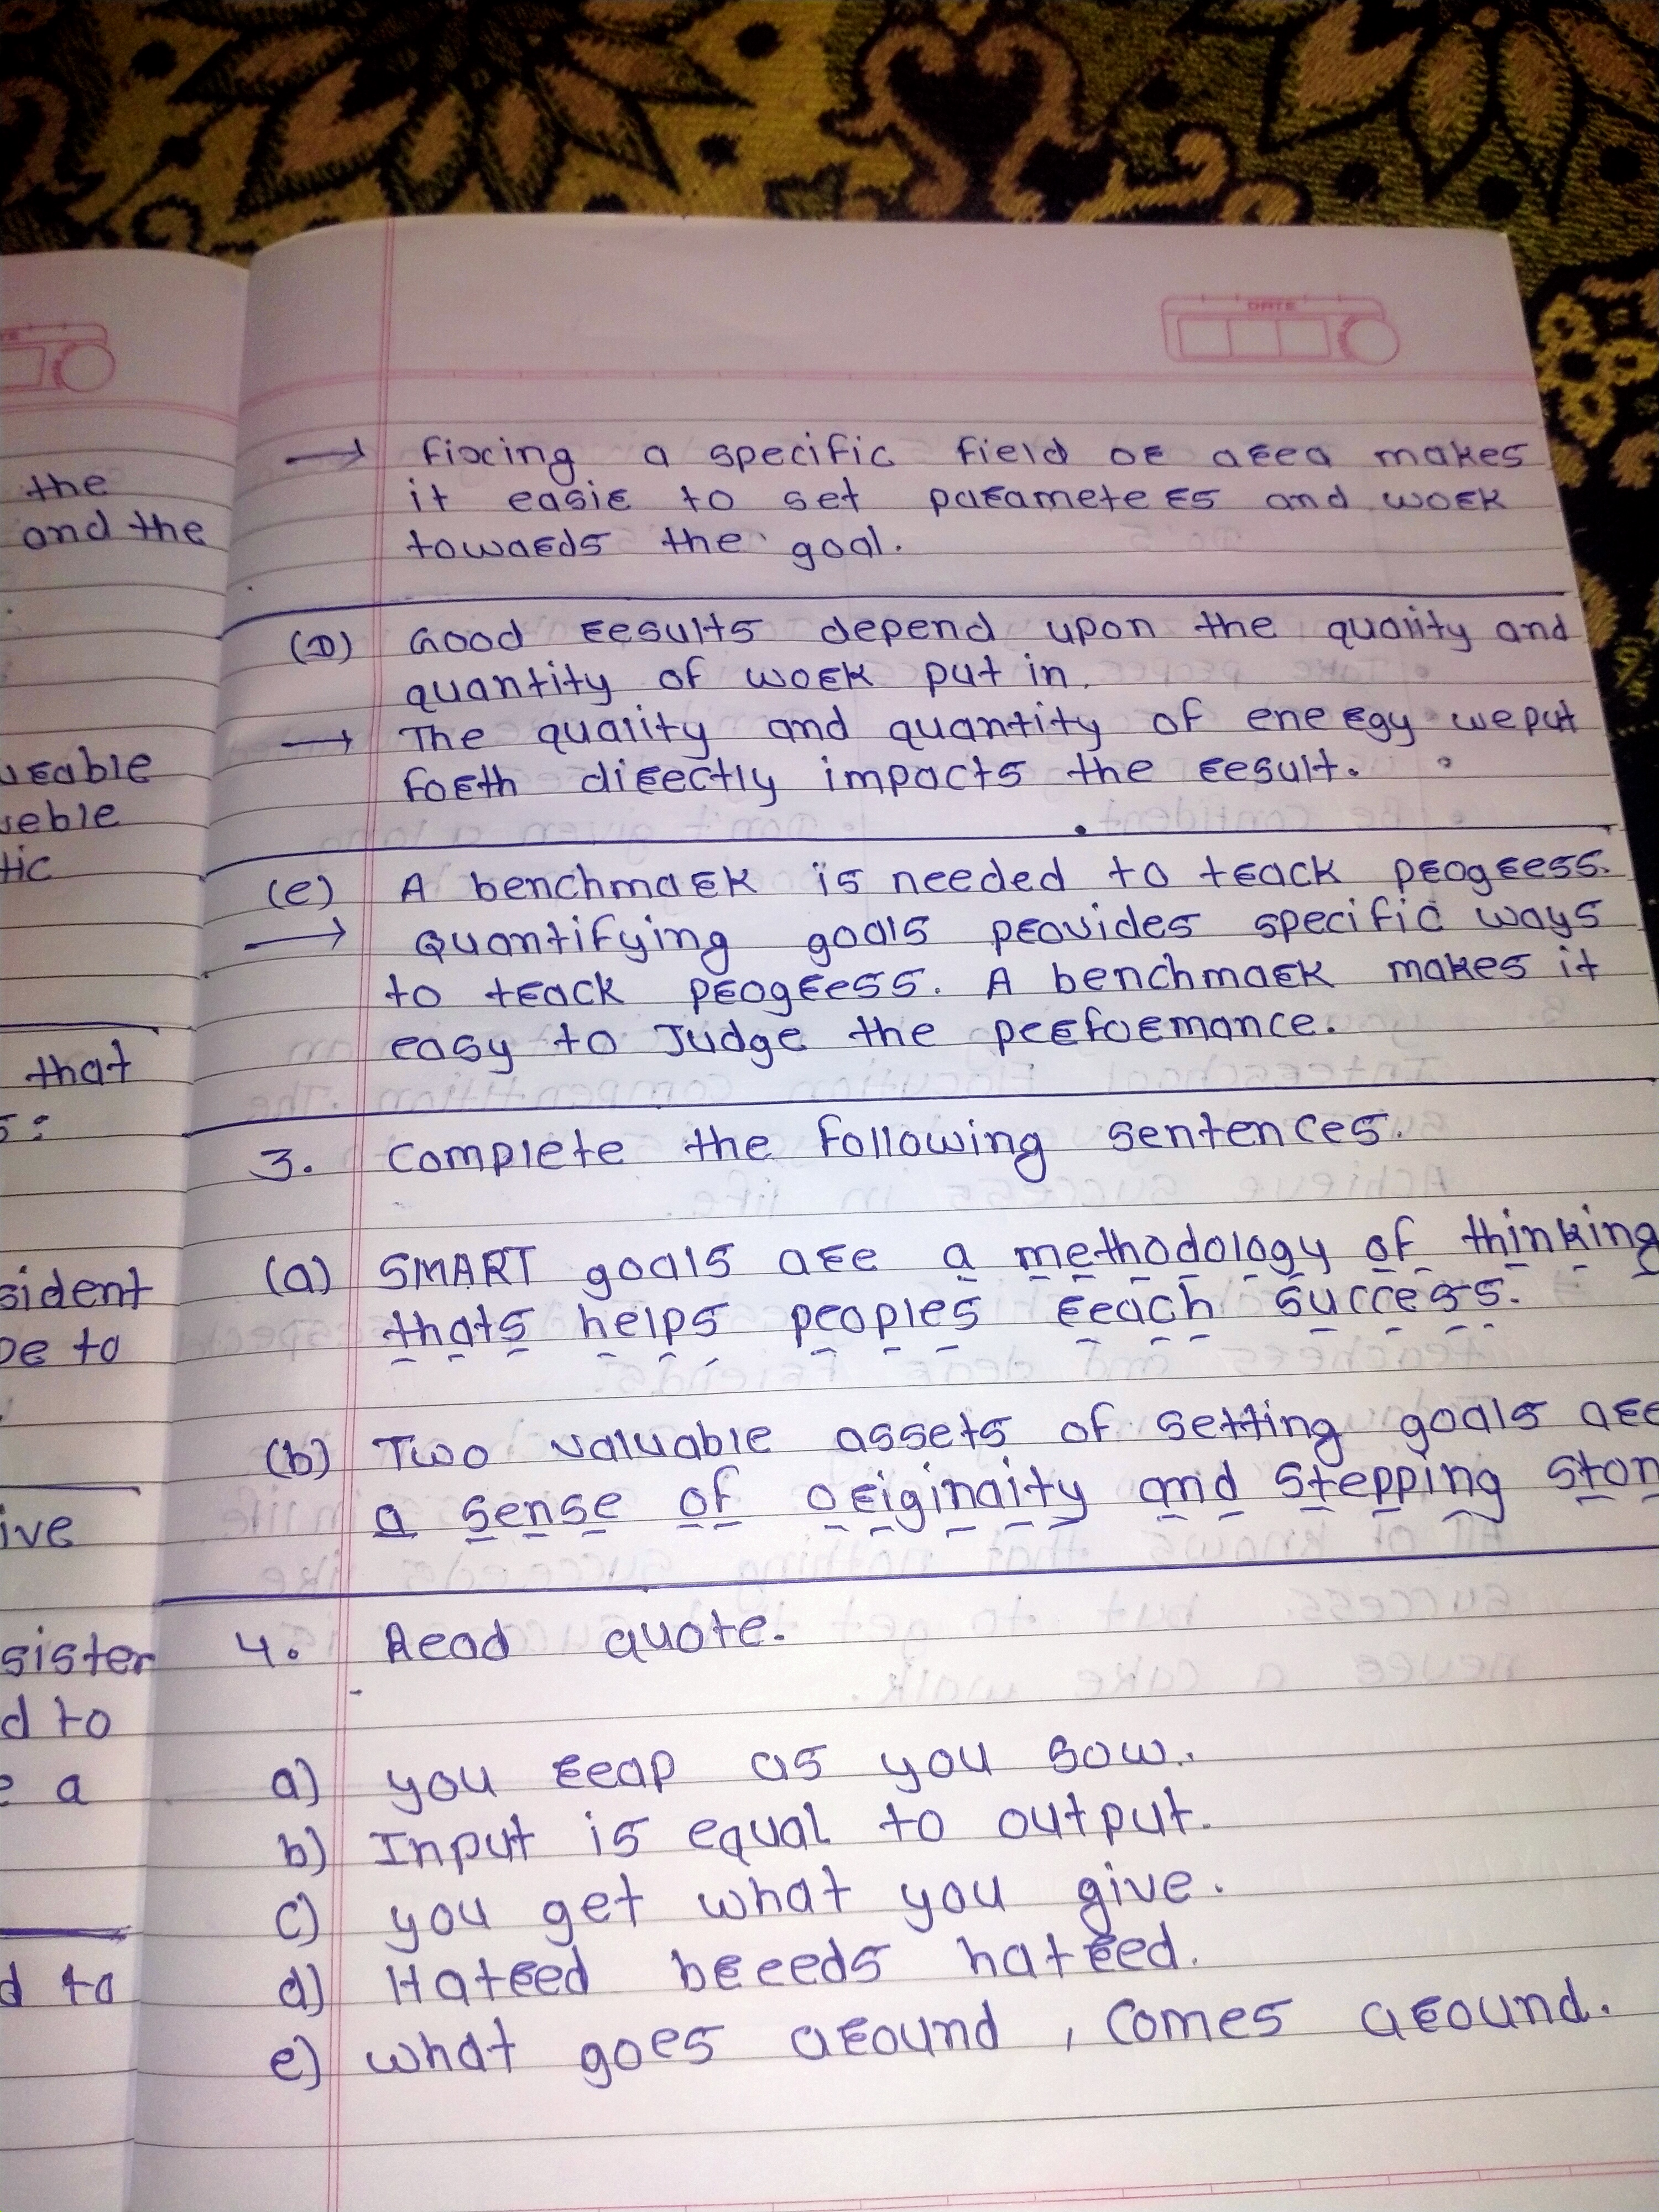 the
and the
that
sident
sister
d to
a
d to
DATE
→ fixing a specific field or area makes
it easie to set parameteers and work
towards the goal.
(D) Good results depend upon the quality and
quantity of work put in.
→ The quality and quantity of energy we put
forth directly impacts the result.
(e) A benchmark is needed to track progress.
→ Quantifying goals provides specific ways
to track progress. A benchmark makes it
easy to Judge the performance.
3. Complete the following sentences.
(a) SMART goals are a methodology of thinking
thats helps peoples reach success.
(b) Two valuable assets of setting goals are
a sense of originaity and stepping ston
4. Read quote.
a) you reap as you sow.
b) Input is equal to output.
c) you get what you give.
d) Hatred breeds hatred.
e) what goes around, comes around.